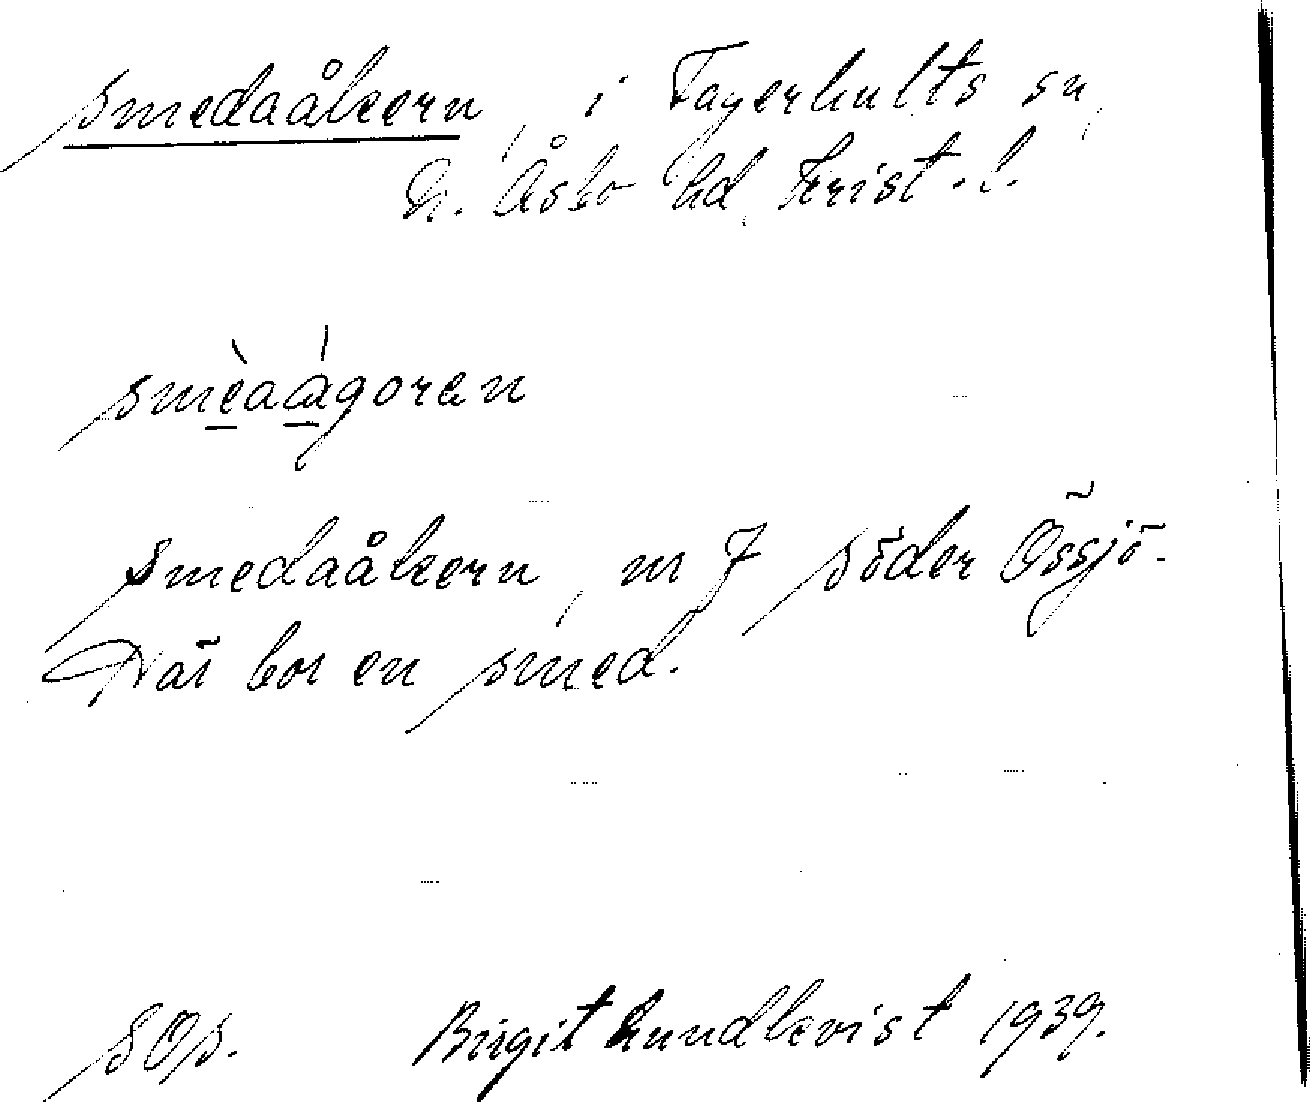 Smedaåkern, i Fagerhults sn,
N. Åsbo hd, Krist. l.
smèaágoran
Smedaåkern, nr 7 Söder Össjö.
Där bor en smed.
SOS. Birgit Lundkvist 1939.